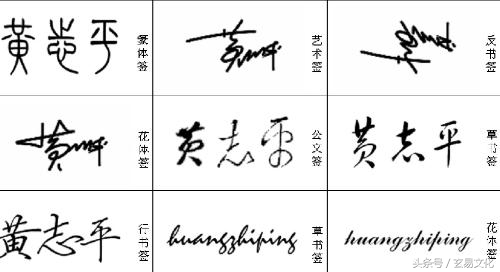 黄志平 篆体签
黄志平 艺术签
黄志平 反书签
黄志平 花体签
黄志平 公文签
黄志平 草书签
黄志平 行书签
huangzhiping 草书签
huangzhiping 花体签
头条号/玄易文化